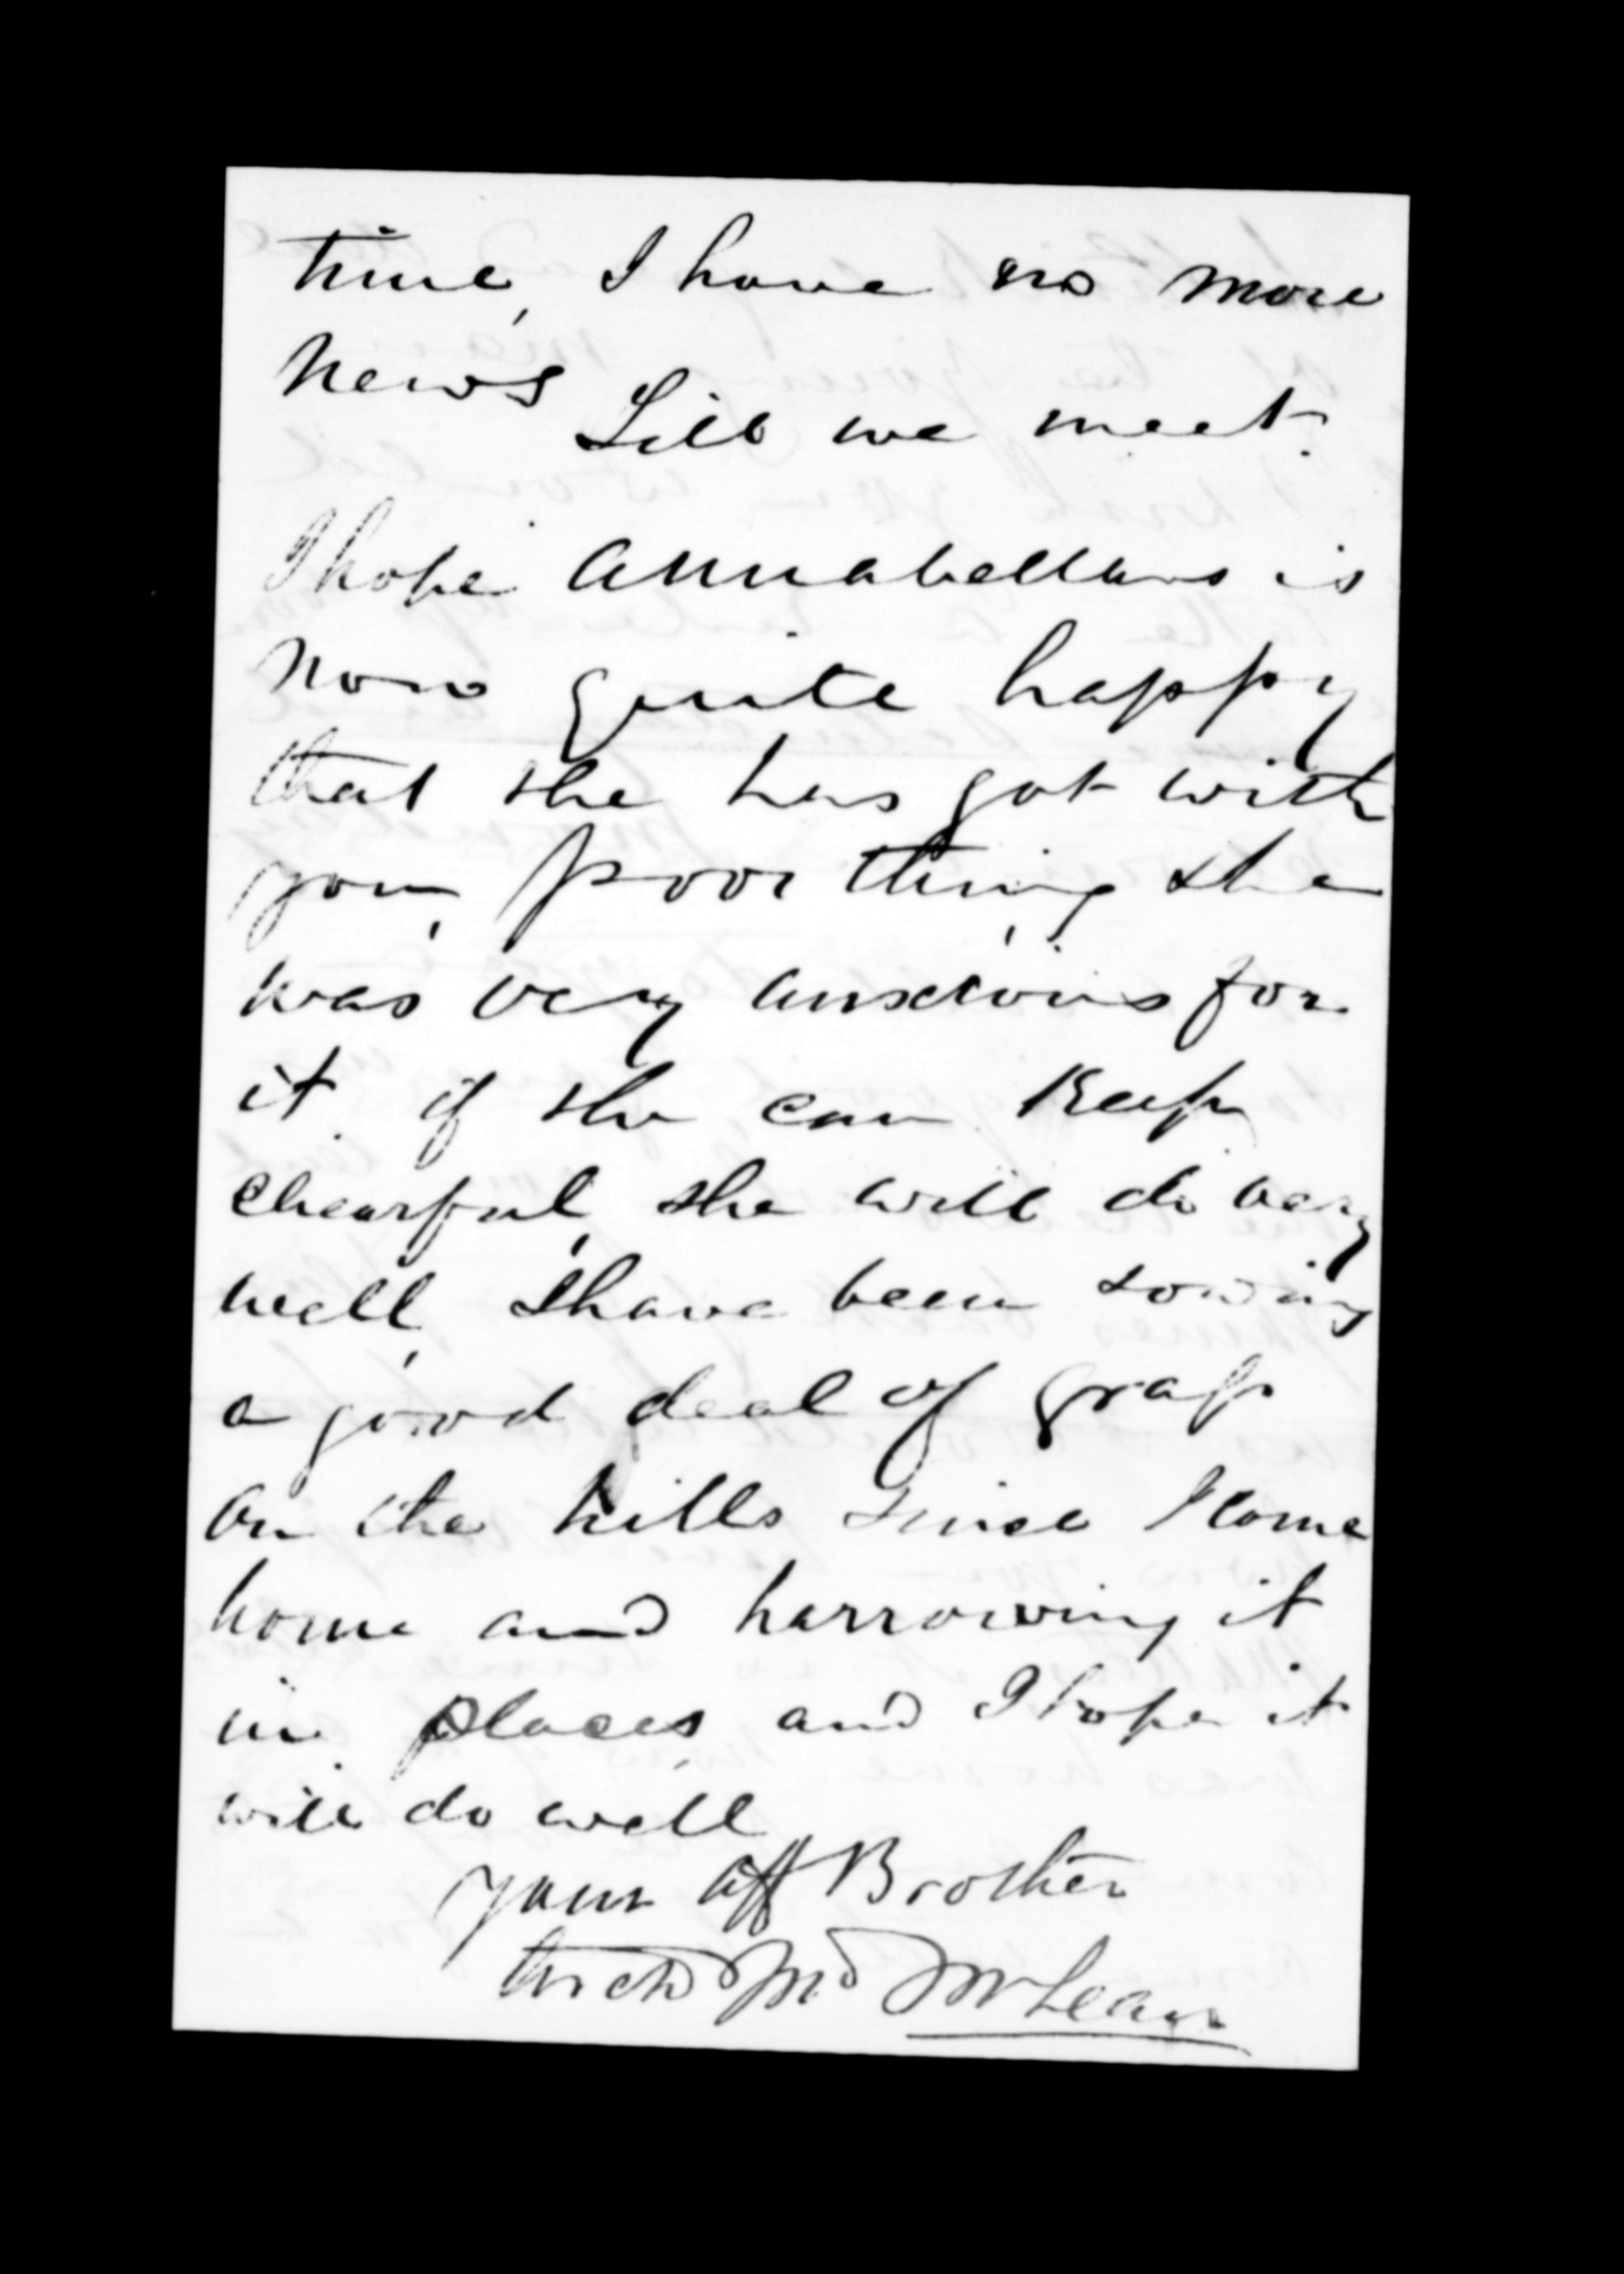 time, I have no more
news Till we meet.
I hope Annabella is
now quite happy
that she has got with
you, poor thing, she
was very anxious for
it. if she can Keep
chearful, she will do very
well, I have been sowing
a good deal of grass
on the hills since I came
home and harrowing it
in places and I hope it
will do well
your aff Brother
Archd Jnd McLean